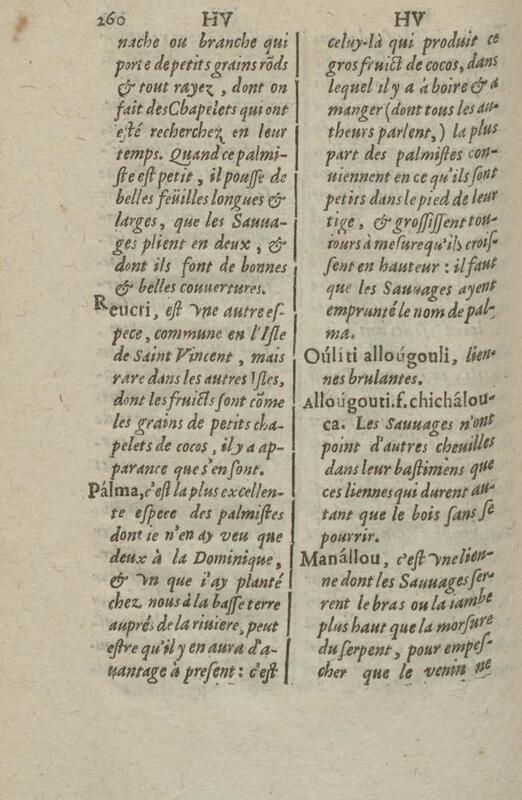 260 HV HV
nache ou branche qui
porte de petits grains rõds
& tout rayez, dont on
fait des Chapelets qui ont
esté recherchez en leur
temps. Quand ce palmi-
ste est petit, il pousse de
belles feüilles longues &
larges, que les Sauua-
ges plient en deux, &
dont ils font de bonnes
& belles couuertures.
Reucri, est vne autre es-
pece, commune en l'Isle
de Saint Vincent, mais
rare dans les autres Isles,
dont les fruicts sont cõme
les grains de petits cha-
pelets de cocos, il y a ap-
parance que s'en sont.
Pálma, c'est la plus excellen-
te espece des palmistes
dont ie n'en ay veu que
deux à la Dominique,
& vn que i'ay planté
chez nous à la basse terre
auprés de la riuiere, peut
estre qu'il y en aura d'a-
uantage à present: c'est
celuy-là qui produit ce
gros fruict de cocos, dans
lequel il y a à boire & a
manger (dont tous les au-
theurs parlent,) la plus
part des palmistes con-
uiennent en ce qu'ils sont
petits dans le pied de leur
tige, & grossissent tou-
iours à mesure qu'ils crois-
sent en hauteur: il faut
que les Sauuages ayent
emprunté le nom de pal-
ma.
Oúliti alloúgouli, lien-
nes brulantes.
Alloúgouti.f.chichálou-
ca. Les Sauuages n'ont
point d'autres cheuilles
dans leur bastimens que
ces liennes qui durent au-
tant que le bois sans se
pourrir.
Manállou, c'est vne lien-
ne dont les Sauuages ser-
rent le bras ou la iambe
plus haut que la morsure
du serpent, pour empes-
cher que le venin ne